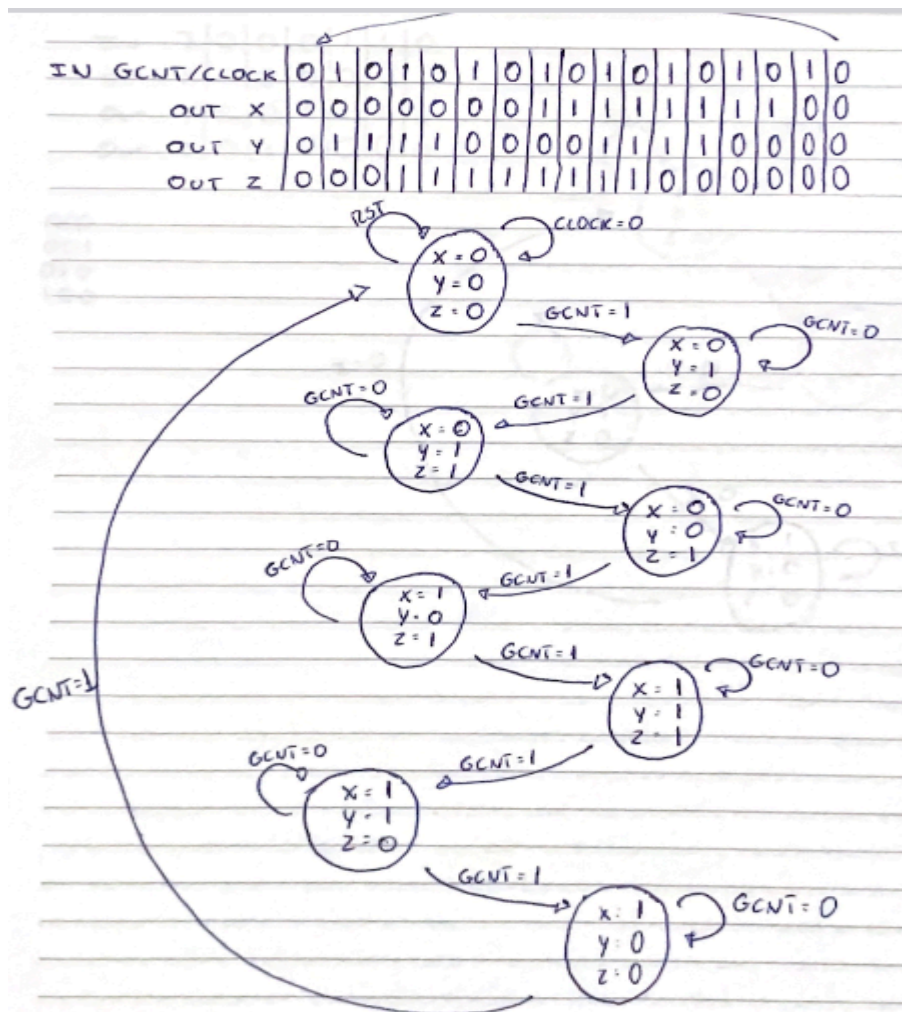 IN GCNT/CLOCK 0 1 0 1 0 1 0 1 0 1 0 1 0 1 0 1 0
OUT X 0 0 0 0 0 0 0 1 1 1 1 1 1 1 1 0 0
OUT Y 0 1 1 1 1 0 0 0 0 1 1 1 1 0 0 0 0
OUT Z 0 0 0 1 1 1 1 1 1 1 1 0 0 0 0 0 0
RST
CLOCK=0
X=0
Y=0
Z=0
GCNT=1
X=0
Y=1
Z=0
GCNT=0
GCNT=1
GCNT=0
X=0
Y=1
Z=1
GCNT=1
X=0
Y=0
Z=1
GCNT=0
GCNT=1
GCNT=0
X=1
Y=0
Z=1
GCNT=1
X=1
Y=1
Z=1
GCNT=0
GCNT=1
GCNT=1
GCNT=0
X=1
Y=1
Z=0
GCNT=1
X=1
Y=0
Z=0
GCNT=0